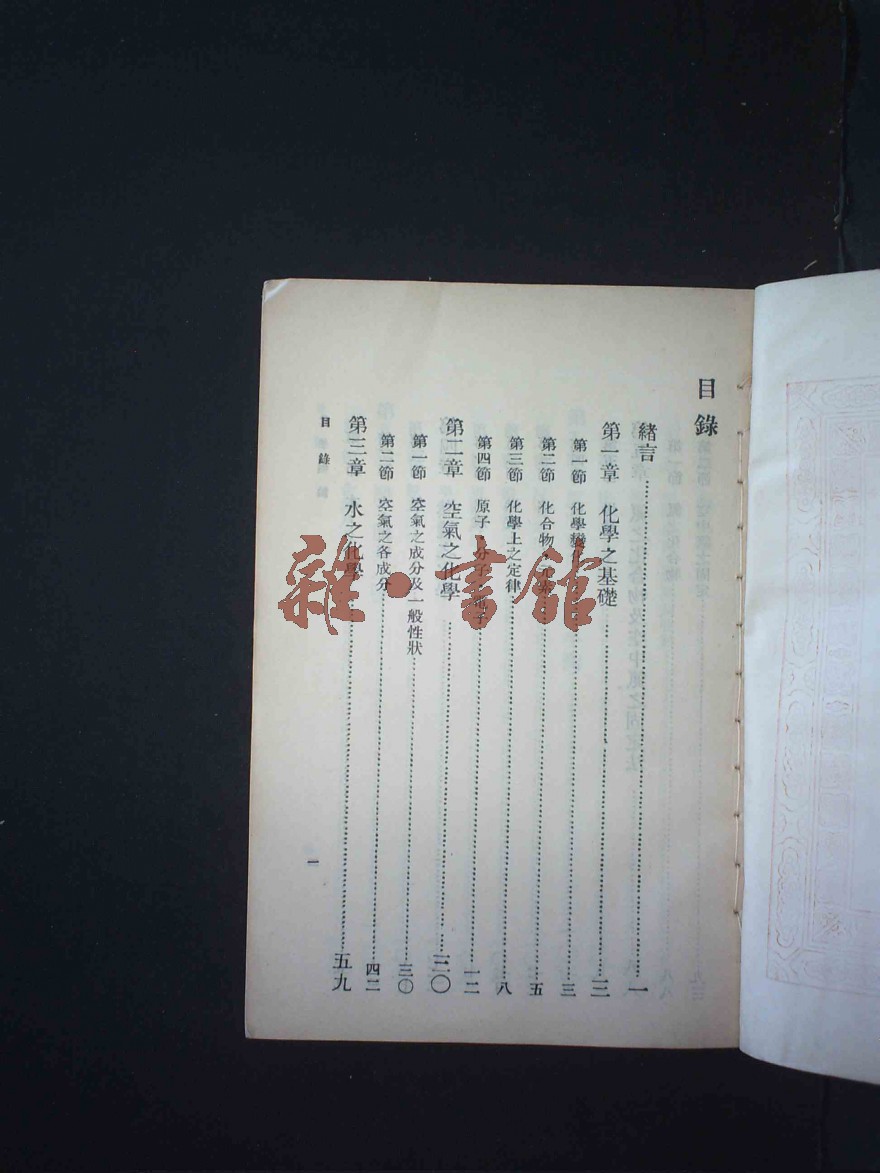 目錄
緒言……一
第一章 化學之基礎……三
第一節 化學變……三
第二節 化合物·元素……五
第三節 化學上之定律……八
第四節 原子·分子·電子……一二
第二章 空氣之化學……三〇
第一節 空氣之成分及一般性狀……三〇
第二節 空氣之各成分……四二
第三章 水之化學……五九
目錄
一
雜·書館